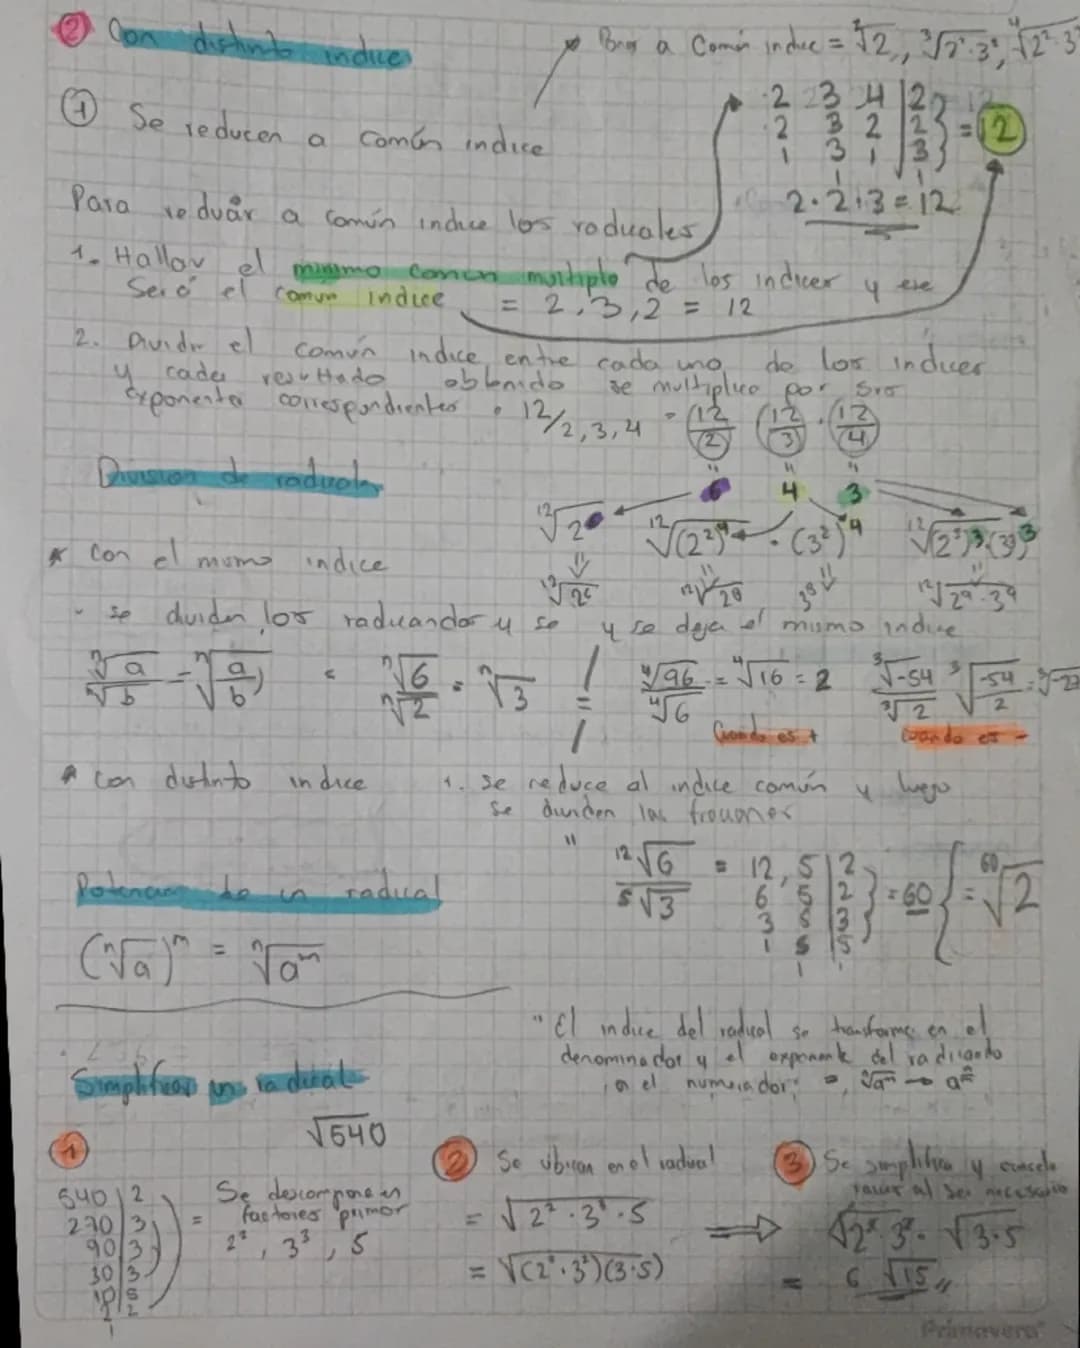 ② Con distinto indice
Poner a Común indice = √2, ³√2²·3², ⁴√2³·3³
① Se reducen a común indice
2 3 4 | 2
2 3 2 | 2 } = 12
1 3 1 | 3
1
2·2·3 = 12
Para reducir a común indice los radicales
1. Hallar el minimo comun multiplo de los indices y ese
Será el comun indice = 2, 3, 2 = 12
2. Dividir el común indice entre cada uno de los indices
y cada resultado obtenido se multiplica por sus
exponentes correspondientes • 12/2,3,4 = (12/2) (12/3) · (12/4)
6 4 3
División de radicales
¹²√2⁶ ¹²√(2²)⁴ · (3²)⁴ ¹²√(2³)³·(3³)³
* Con el mismo indice
¹²√2⁶ ¹²√2⁸ 3⁸ ¹²√2⁹·3⁹
- se dividen los radicandos y se y se deja el mismo indice
ⁿ√a / ⁿ√b = ⁿ√(a/b) = ⁿ√6 / ⁿ√2 = ⁿ√3 // = ⁴√96 / ⁴√6 = ⁴√16 = 2 ³√-54 / ³√2 ³√(-54/2) = ³√-27
Cuando es + Cuando es -
* Con distinto indice 1. Se reduce al indice común y luego
se dividen las fracciones
"
¹²√6 / ⁵√3 = 12, 5 | 2
6 5 | 2
3 5 | 3
1 5 | 5
1
} = 60 { = ⁶⁰√2
Potencia de un radical
(ⁿ√a)ᵐ = ⁿ√aᵐ
" El indice del radical se transforma en el
denominador y el exponente del radicando
en el numerador:
Simplificar un radical
√540
①
540 | 2
270 | 3
90 | 3
30 | 3
10 | 5
2 | 2
1
= Se descompone en
factores primos
2², 3³, 5
② Se ubican en el radical
= √2²·3³·5
= √(2²·3²)(3·5)
⇒
③ Se simplifica y cancela
raices al ser necesario
√2²·3² · √3·5
= 6 √15 //
Primavera